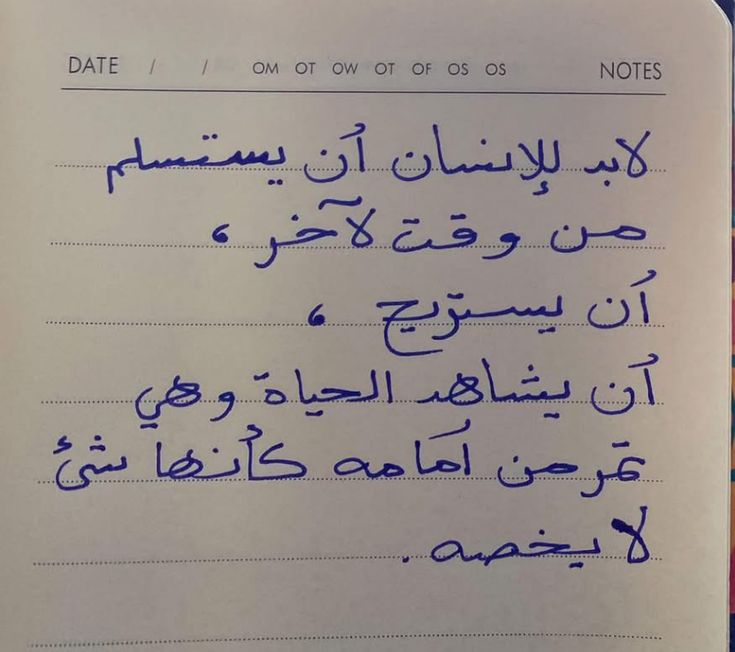 DATE / / OM OT OW OT OF OS OS NOTES
لابد للإنسان أن يستسلم
من وقت لآخر ،
أن يستريح ،
أن يشاهد الحياة وهي
تمر من أمامه كأنها شئ
لا يخصه .